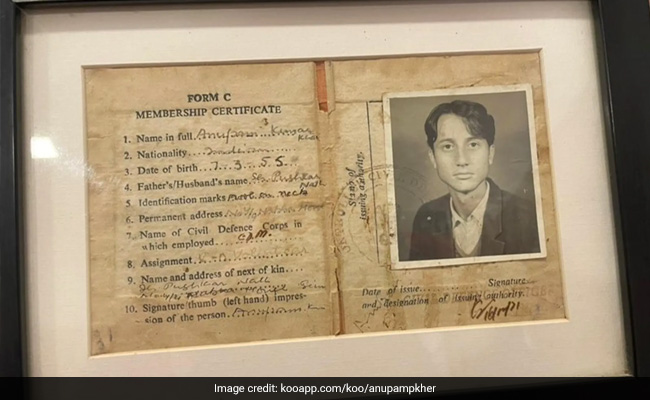 FORM C
MEMBERSHIP CERTIFICATE
1. Name in full Anupam Kumar
Kher
2. Nationality Indian
3. Date of birth 7.3.55
4. Father's/Husband's name Sh. Pushkar
Nath
5. Identification marks
6. Permanent address
7. Name of Civil Defence Corps in
which employed
8. Assignment
9. Name and address of next of kin
Sh. Pushkar Nath
10. Signature/thumb (left hand) impres-
sion of the person Anupam K
Stamp of
issuing authority.
Date of issue Signature
and designation of issuing authority.
Image credit: kooapp.com/koo/anupampkher